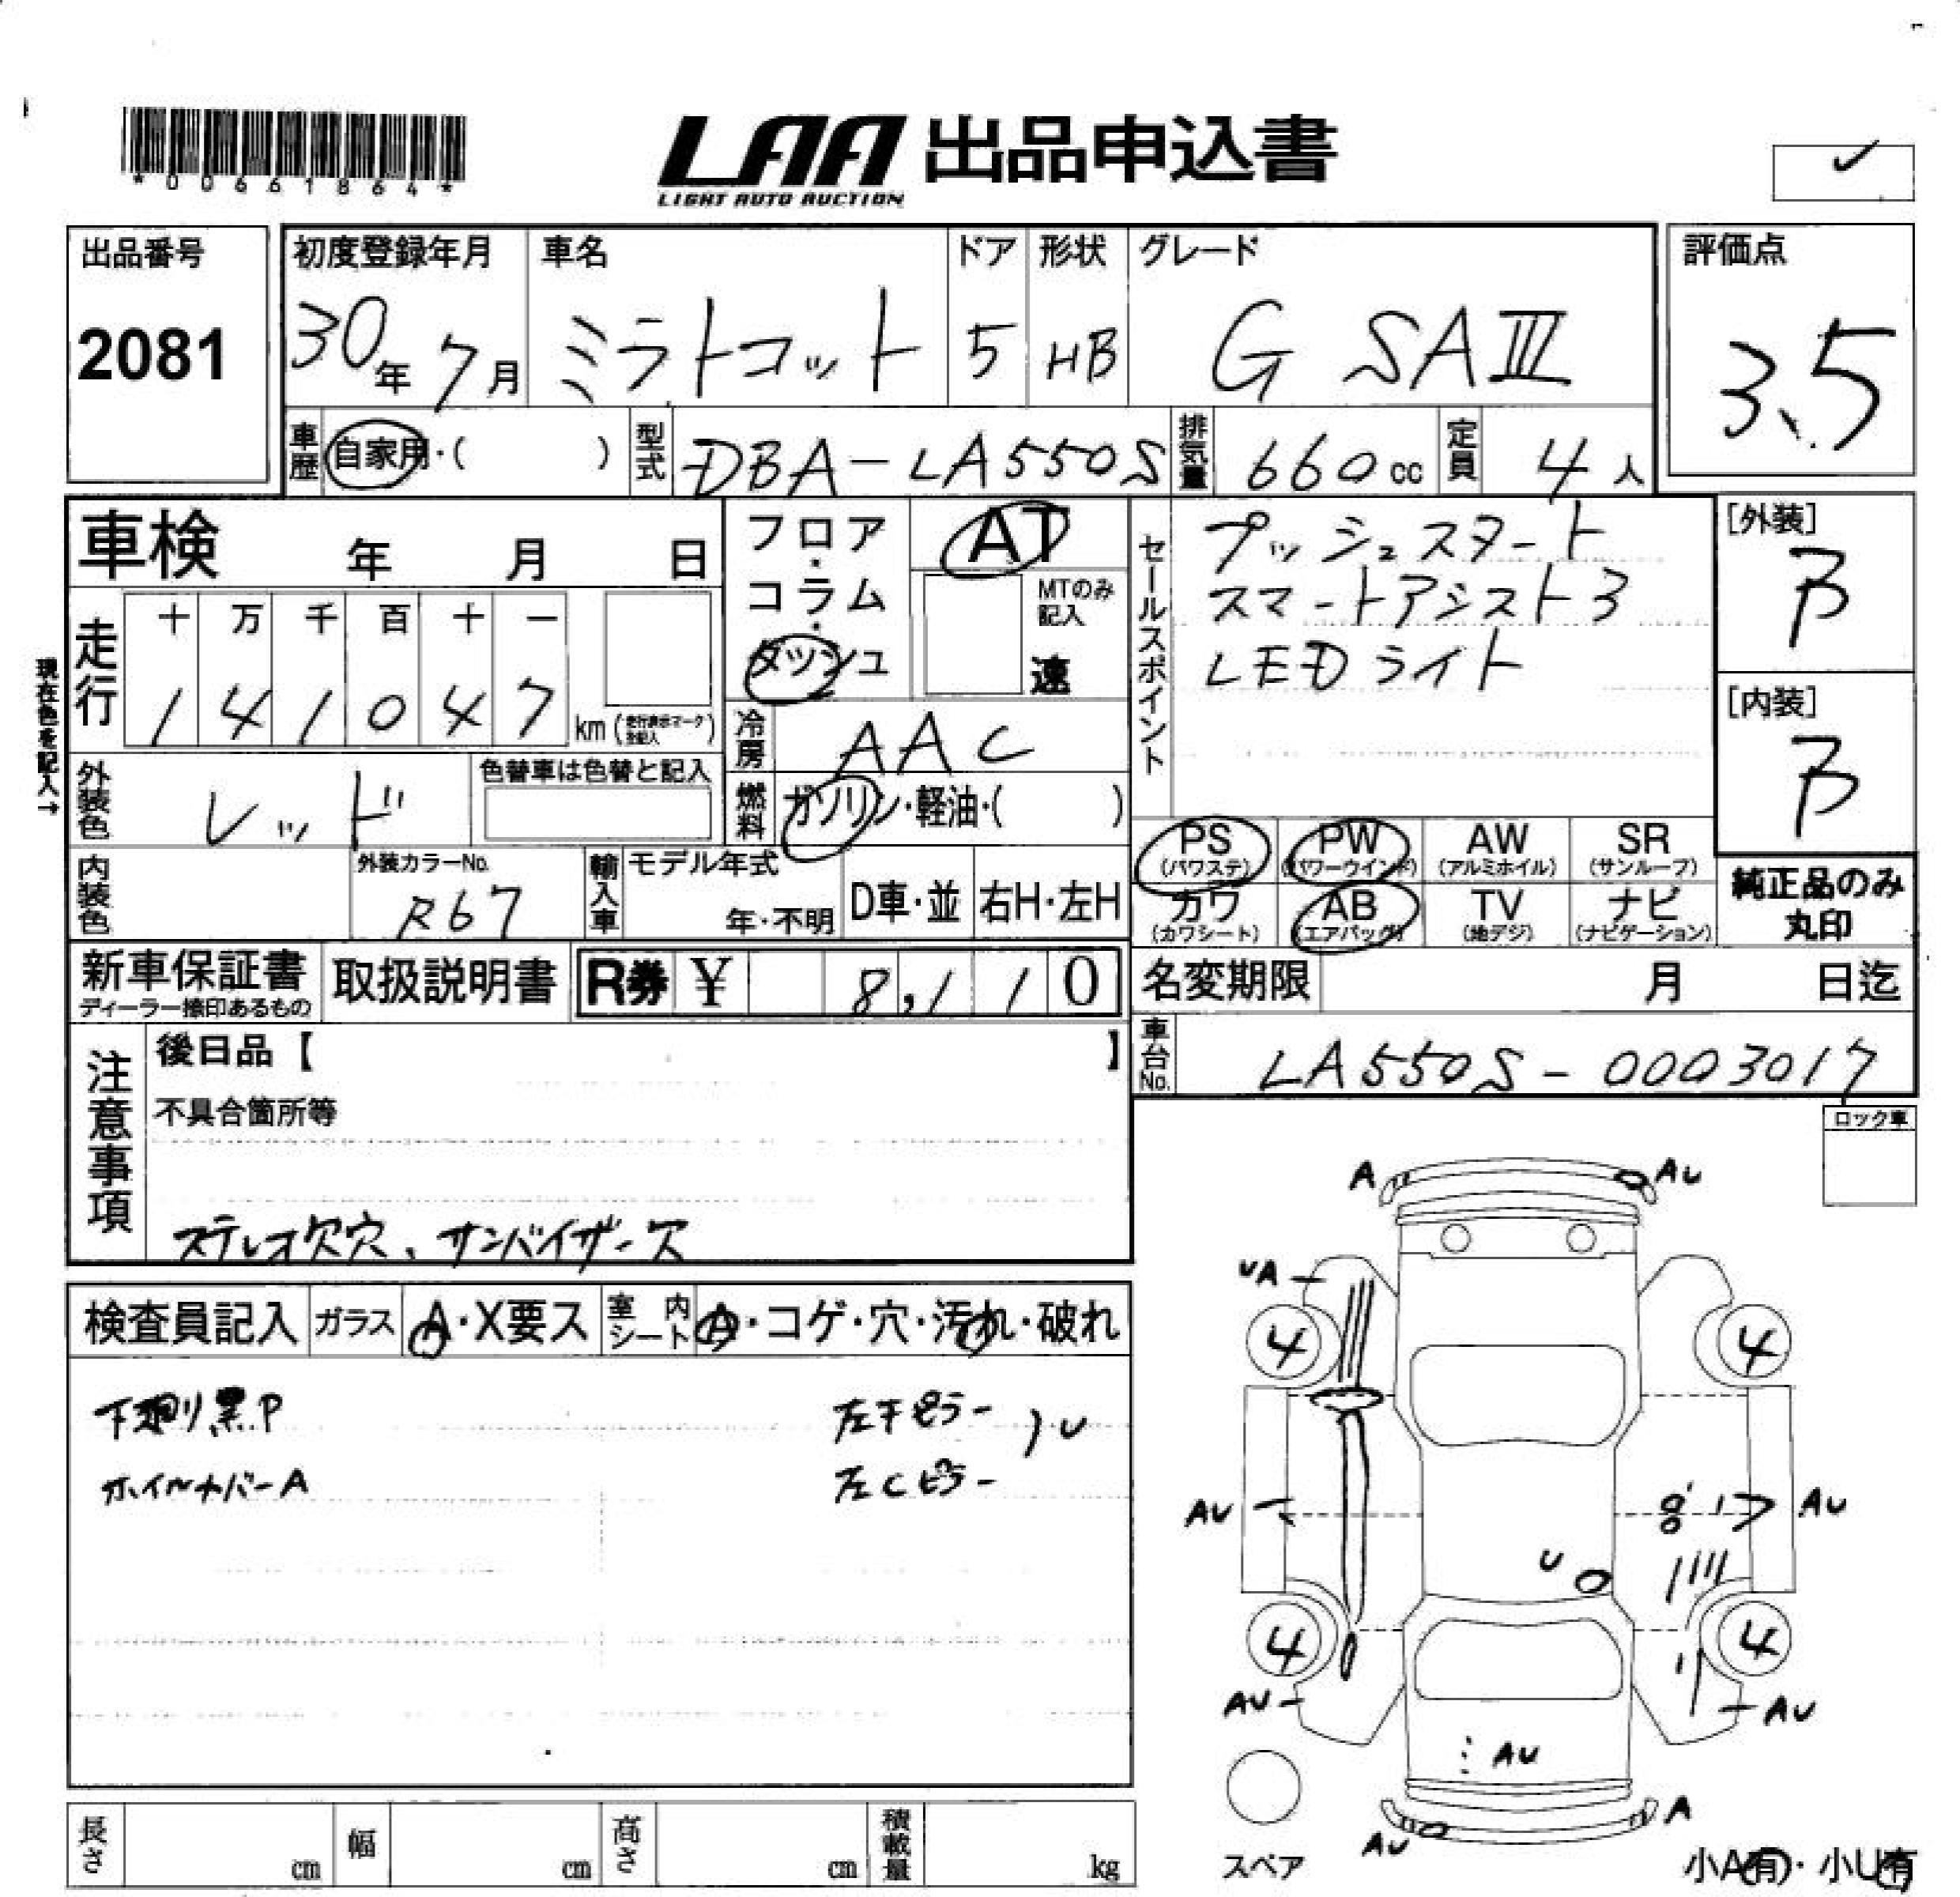 *00661864*
LAA 出品申込書
LIGHT AUTO AUCTION
✓
出品番号
2081
初度登録年月
30年 7月
車名
ミラトコット
ドア
5
形状
HB
グレード
G SAⅢ
評価点
3.5
車歴 自家用・( )
型式 DBA-LA550S
排気量 660cc
定員 4人
車検 年 月 日
フロア・コラム・ダッシュ
AT
MTのみ記入
速
セールスポイント
プッシュスタート
スマートアシスト3
LEDライト
[外装]
B
[内装]
B
現在色を記入→
走行
十 万 千 百 十 一
1 4 1 0 4 7 km (走行表示マーク注記入)
冷房 AAC
外装色 レッド
色替車は色替と記入
燃料 ガソリン・軽油・( )
内装色
外装カラーNo.
R67
輸入車
モデル年式
年・不明
D車・並
右H・左H
PS (パワステ)
PW (パワーウインド)
AW (アルミホイル)
SR (サンルーフ)
カワ (カワシート)
AB (エアバッグ)
TV (地デジ)
ナビ (ナビゲーション)
純正品のみ
丸印
新車保証書
ディーラー捺印あるもの
取扱説明書
R券 ¥ 8,110
名変期限 月 日迄
車台No. LA550S-0003017
注意事項
後日品【 】
不具合箇所等
ステレオ欠穴、サンバイザー欠
ロック車
検査員記入 ガラス A・X要ス 室内シート A・コゲ・穴・汚れ・破れ
下廻り黒P
ホイルカバーA
左Cピラー
U
A
AU
UA
4
4
AU
AU
U
4
4
AU
AU
AU
A
AU
スペア
小A有・小U有
長さ cm
幅 cm
高さ cm
積載量 kg